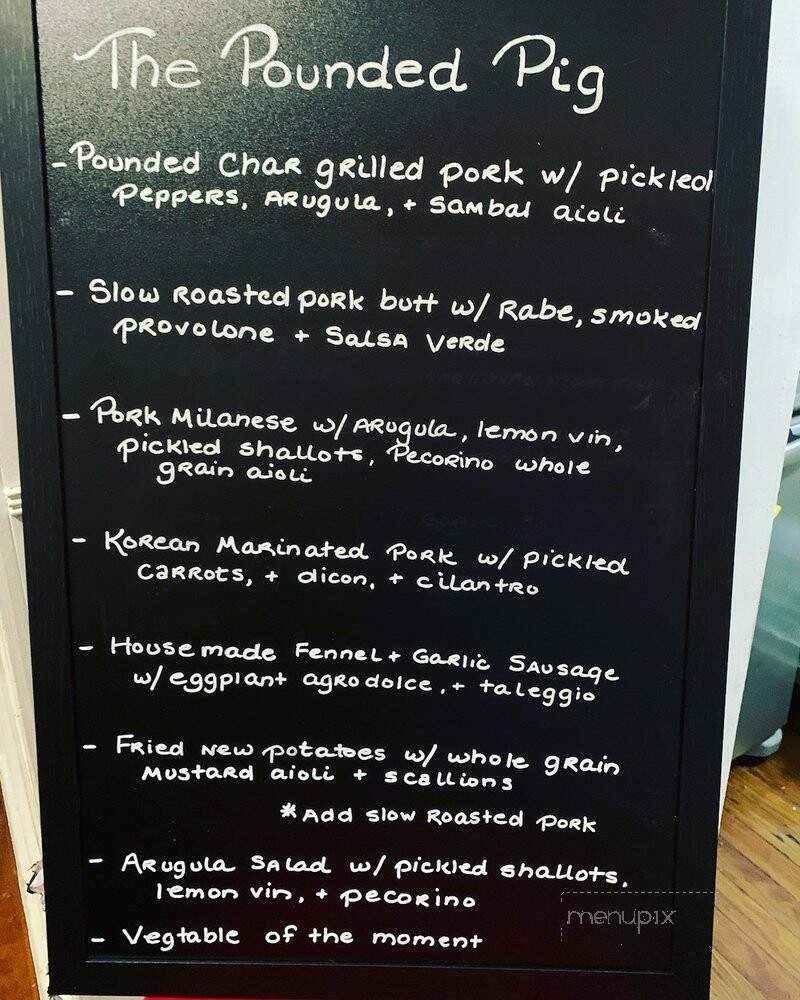 The Pounded Pig
- Pounded Char grilled pork w/ pickled
peppers, Arugula, + Sambal aioli
- Slow Roasted pork butt w/ Rabe, smoked
provolone + Salsa Verde
- Pork Milanese w/ Arugula, lemon vin,
pickled shallots, Pecorino whole
grain aioli
- Korean Marinated Pork w/ pickled
carrots, + dicon, + cilantro
- House made Fennel + Garlic Sausage
w/ eggplant agrodolce, + taleggio
- Fried new potatoes w/ whole grain
mustard aioli + scallions
*Add slow Roasted pork
- Arugula Salad w/ pickled shallots,
lemon vin, + pecorino
- Vegtable of the moment
menupix